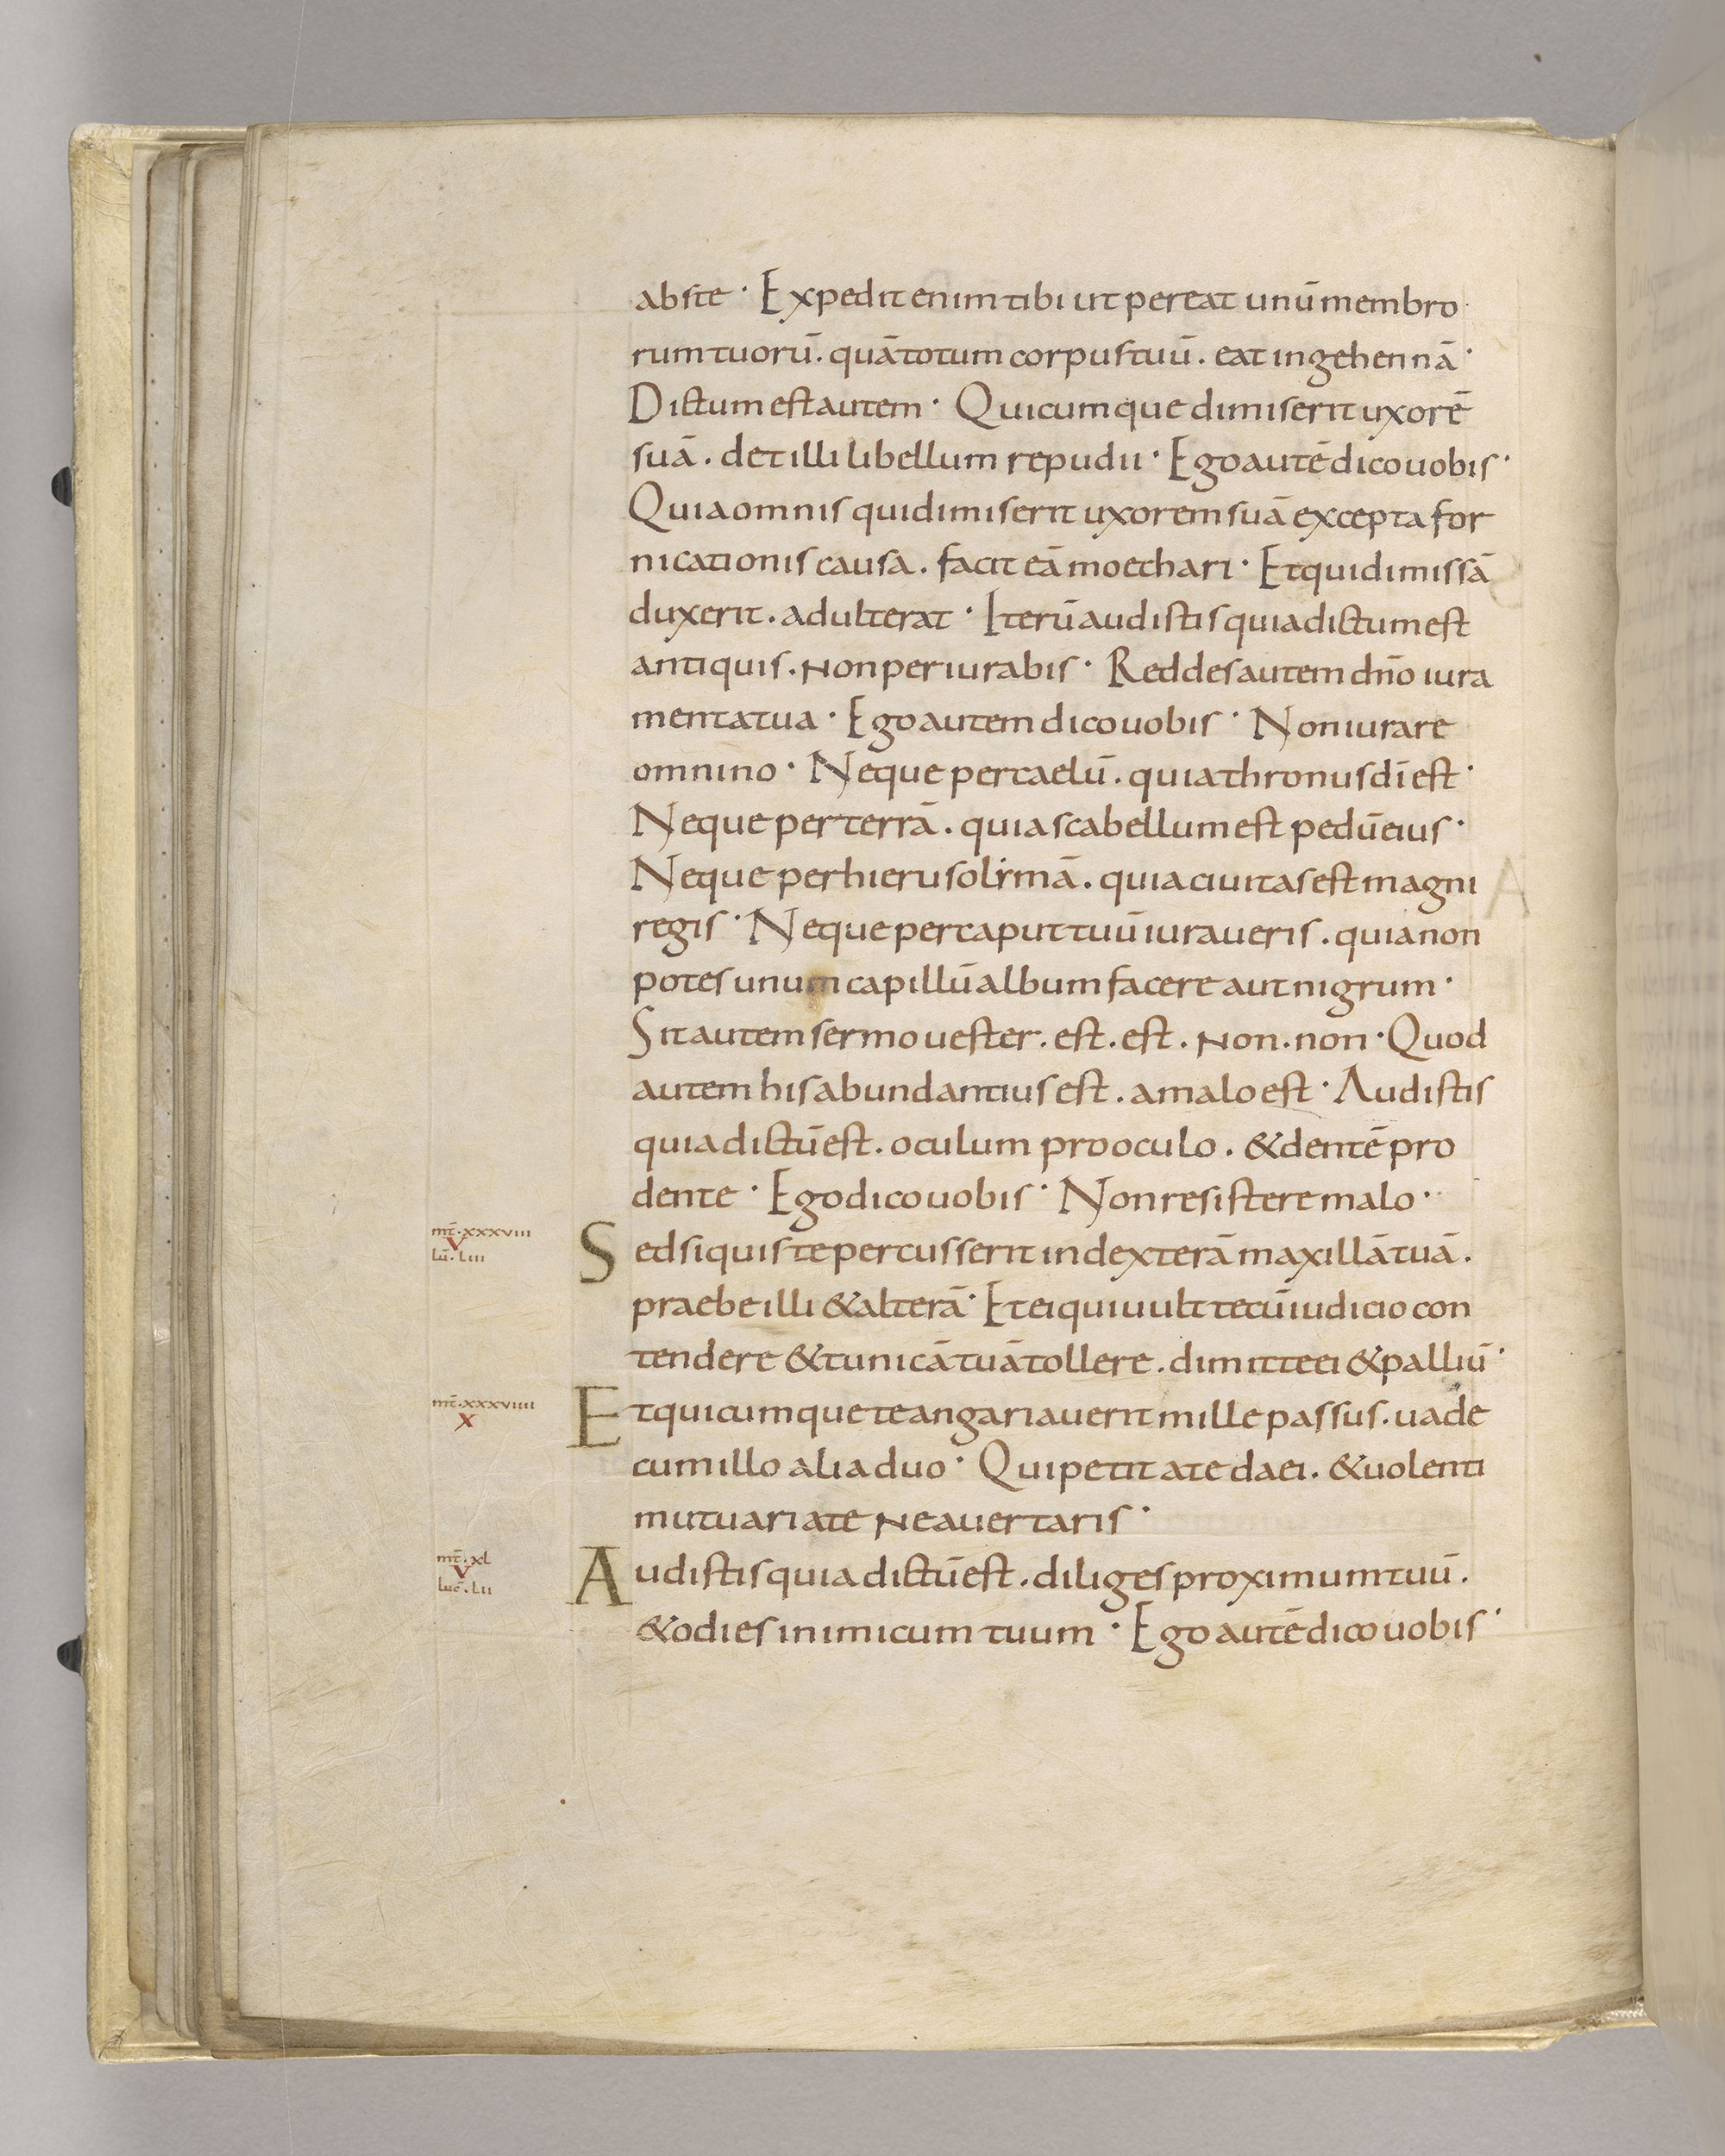 abste · Expedit enim tibi ut pereat unū membro
rum tuorū. quā totum corpus tuū. eat in gehennā ·
Dictum est autem · Quicumque dimiserit uxorē
suā. det illi libellum repudii · Ego autē dico uobis ·
Quia omnis qui dimiserit uxorem suā excepta for
nicationis causa. facit eā moechari · Et qui dimissā
duxerit. adulterat · Iterū audistis quia dictum est
antiquis. non periurabis · Reddes autem dn̄o iura
menta tua · Ego autem dico uobis · Non iurare
omnino · Neque per caelū. quia thronus dī est ·
Neque per terrā. quia scabellum est pedū eius ·
Neque per hierusolimā. quia ciuitas est magni
regis · Neque per caput tuū iuraueris. quia non
potes unum capillū album facere aut nigrum ·
Sit autem sermo uester. est. est. non. non · Quod
autem his abundantius est. a malo est · Audistis
quia dictū est. oculum pro oculo. & dentē pro
dente · Ego dico uobis · Non resistere malo ·
mt̄. xxxviii
V
lū. Liii
Sed si quis te percusserit in dexterā maxillā tuā.
praebe illi & alterā · Et ei qui uult tecū iudicio con
tendere & tunicā tuā tollere. dimitte ei & palliū ·
mt̄. xxxviiii
X
Et quicumque te angariauerit mille passus. uade
cum illo alia duo · Qui petit a te da ei. & uolenti
mutuari a te ne auertaris ·
mt̄. xl
V
luc̄. Lii
Audistis quia dictū est. diliges proximum tuū.
& odies inimicum tuum · Ego autē dico uobis ·